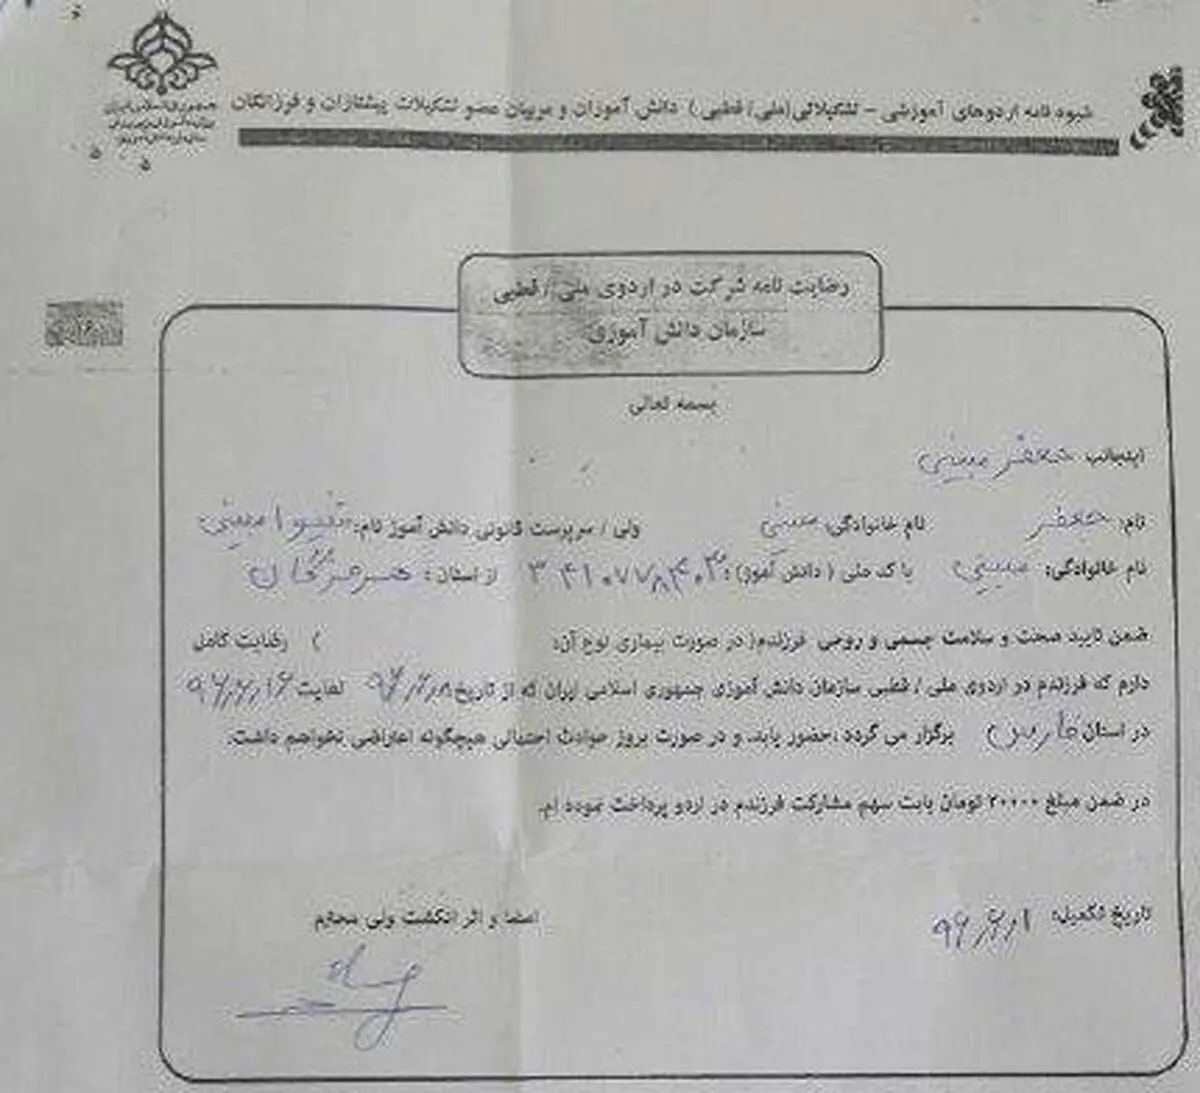 جمهوری اسلامی ایران
شیوه نامه اردوهای آموزشی - تشکیلاتی (ملی / قطبی) دانش آموزان و مربیان عضو تشکیلات پیشتازان و فرزانگان
رضایت نامه شرکت در اردوی ملی / قطبی
سازمان دانش آموزی
بسمه تعالی
اینجانب جعفر مبینی
نام: جعفر نام خانوادگی: مبینی ولی / سرپرست قانونی دانش آموز نام:
نام خانوادگی: مبینی با کد ملی ( دانش آموز): ۳۴۱۰۷۷۸۴۰۳ از استان: هرمزگان
ضمن تایید صحت و سلامت جسمی و روحی فرزندم( در صورت بیماری نوع آن: ) رضایت کامل
دارم که فرزندم در اردوی ملی / قطبی سازمان دانش آموزی جمهوری اسلامی ایران که از تاریخ ۹۶/۶/۸ لغایت ۹۶/۶/۱۶
در استان فارس برگزار می گردد ،حضور یابد. و در صورت بروز حوادث احتمالی هیچگونه اعتراضی نخواهم داشت.
در ضمن مبلغ ۲۰۰۰۰ تومان بابت سهم مشارکت فرزندم در اردو پرداخت نموده ام.
تاریخ تکمیل: ۹۶/۶/۱
امضا و اثر انگشت ولی محترم